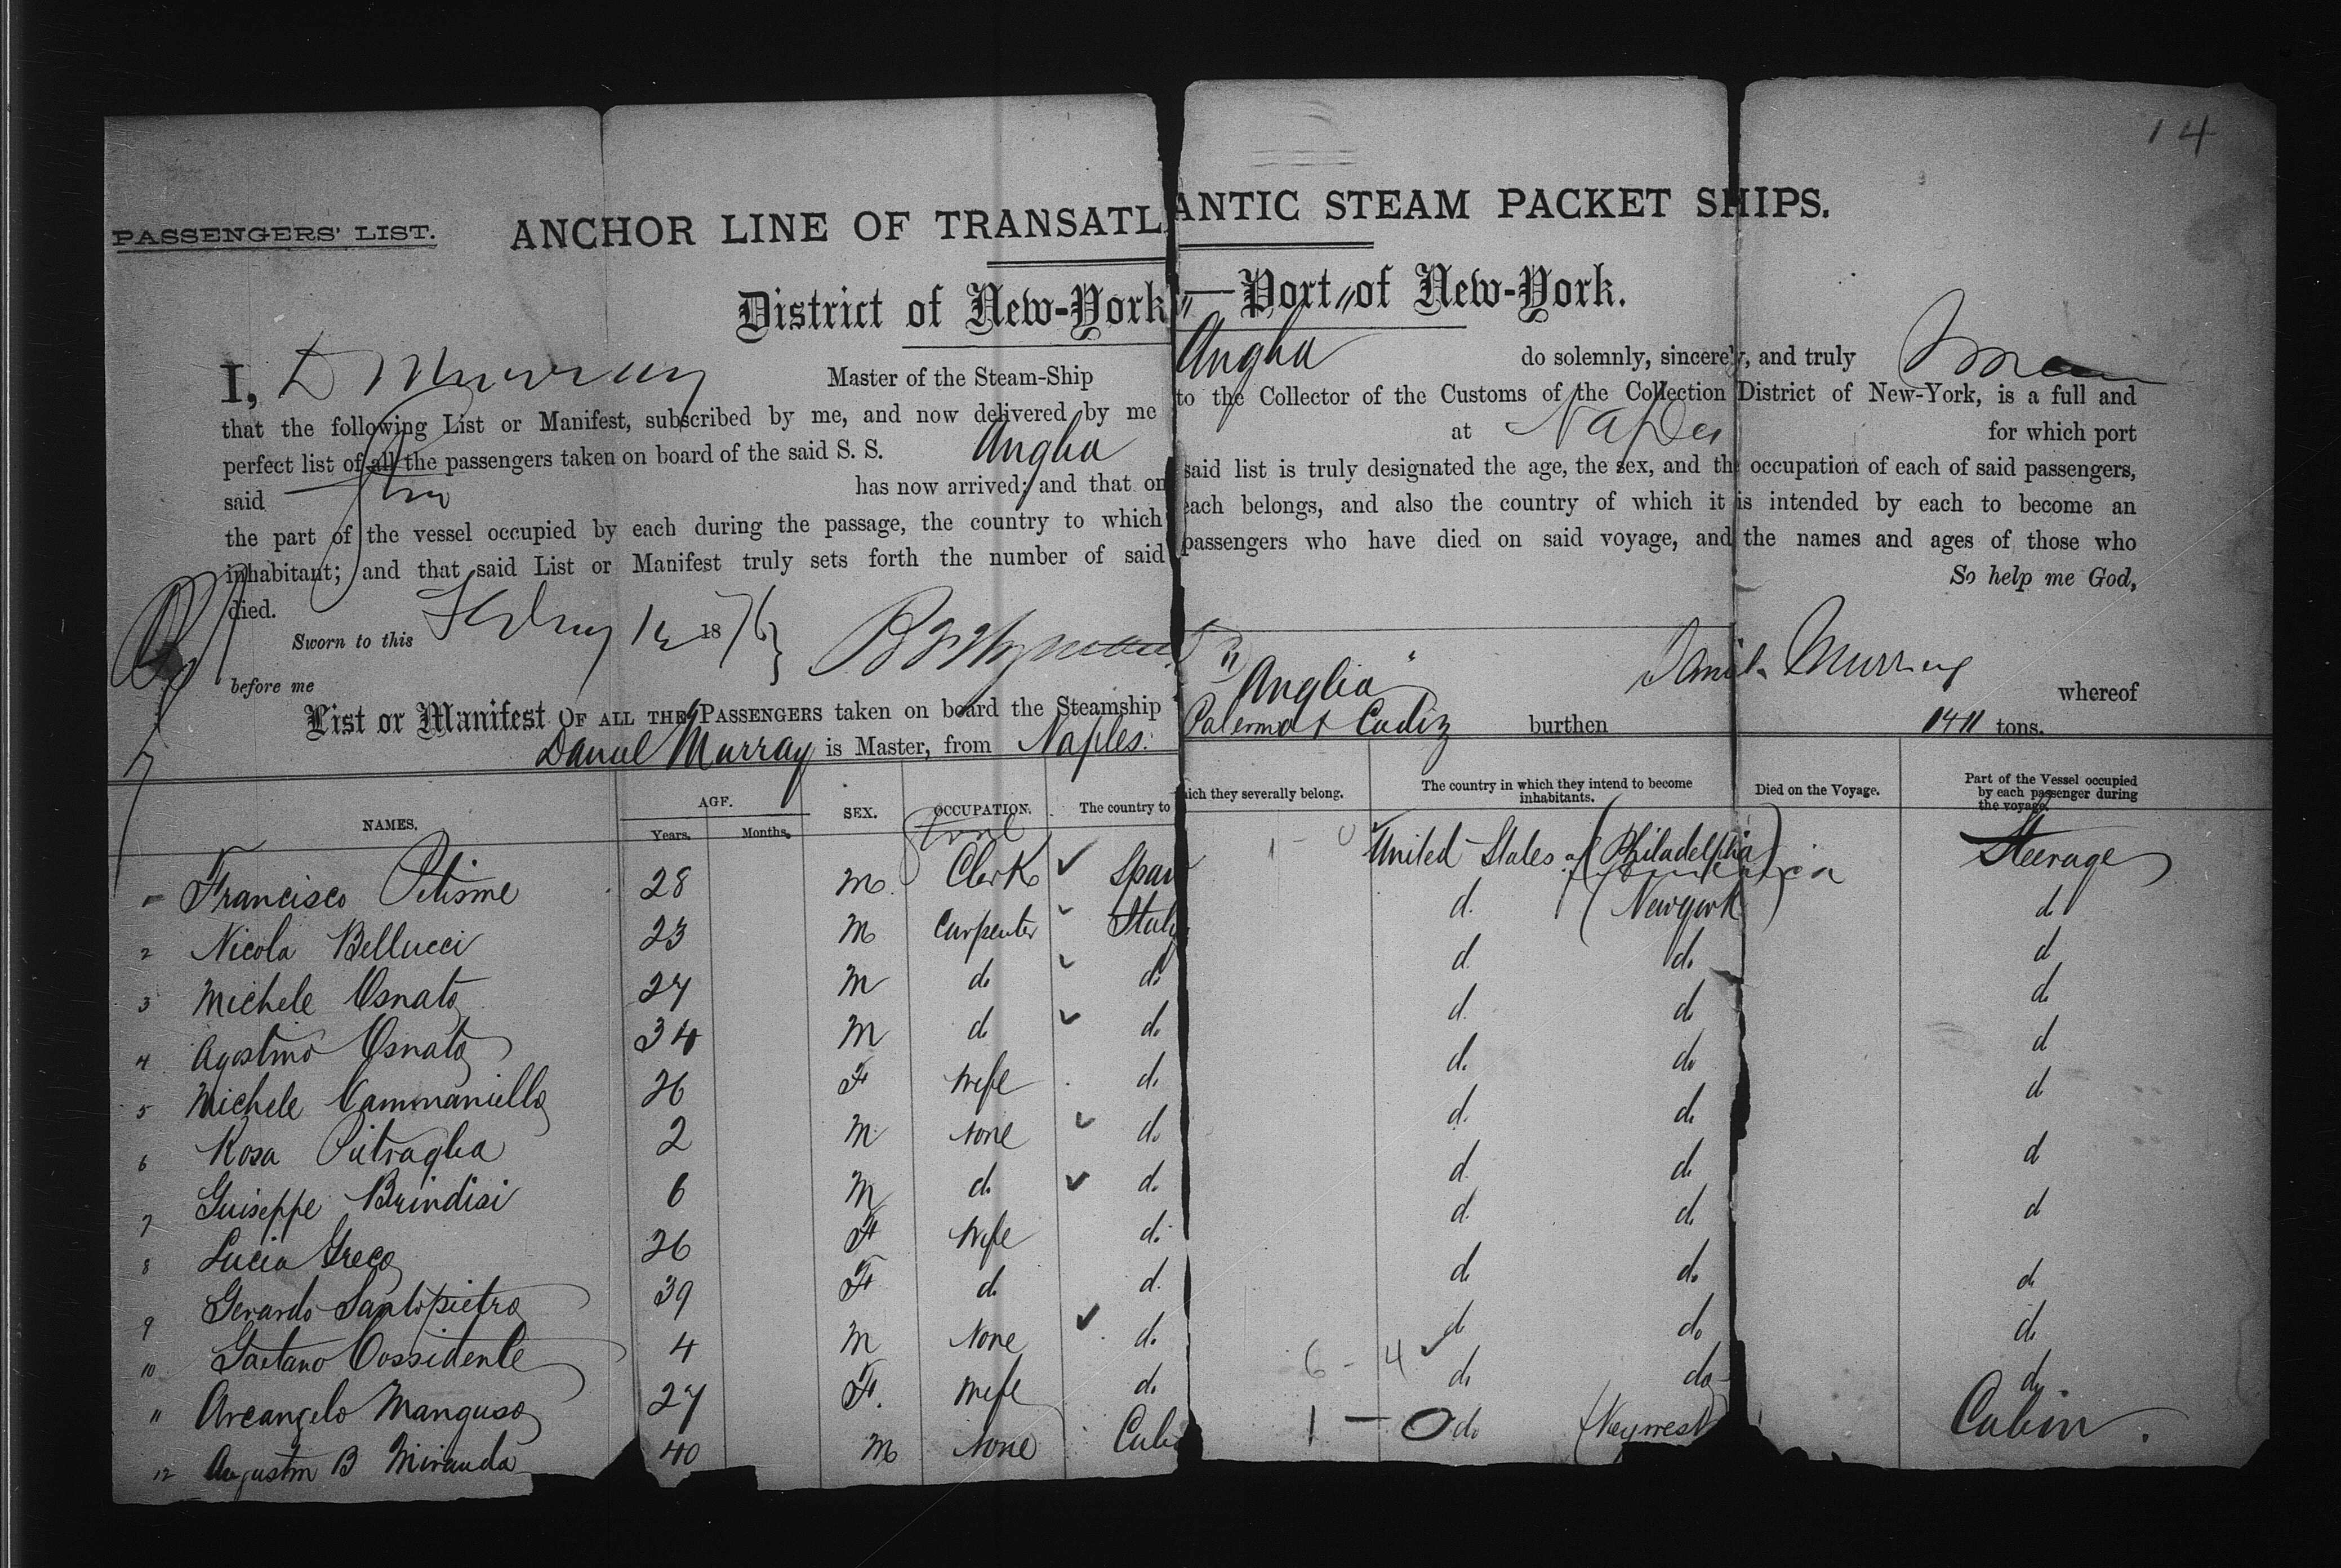 14
PASSENGERS' LIST. ANCHOR LINE OF TRANSATLANTIC STEAM PACKET SHIPS.
District of New-York — Port of New-York.
I, D Murray Master of the Steam-Ship Anglia do solemnly, sincerely, and truly
that the following List or Manifest, subscribed by me, and now delivered by me to the Collector of the Customs of the Collection District of New-York, is a full and
perfect list of all the passengers taken on board of the said S. S. Anglia at Naples for which port
said has now arrived; and that on said list is truly designated the age, the sex, and the occupation of each of said passengers,
the part of the vessel occupied by each during the passage, the country to which each belongs, and also the country of which it is intended by each to become an
inhabitant; and that said List or Manifest truly sets forth the number of said passengers who have died on said voyage, and the names and ages of those who
died. So help me God,
Sworn to this 18 76 } Daniel Murray
before me
List or Manifest OF ALL THE PASSENGERS taken on board the Steamship "Anglia" whereof
Daniel Murray is Master, from Naples. Palermo & Cadiz burthen 1411 tons.
NAMES. AGE. Years. Months. SEX. OCCUPATION. The country to which they severally belong. The country in which they intend to become inhabitants. Died on the Voyage. Part of the Vessel occupied by each passenger during the voyage.
1 Francisco Petisme 28 M. Clerk ✓ Spain 1 - 0 United States of (Philadelphia) Steerage
2 Nicola Bellucci 23 M Carpenter ✓ Italy d. (Newyork) do
3 Michele Osnato 27 M do ✓ do d do d
4 Agostino Osnato 34 M d ✓ do d. do do
5 Michele Cammaniello 26 F Wife do d. do d
6 Rosa Pietraglia 2 M None ✓ do d. do do
7 Guiseppe Brindisi 6 M do ✓ do d. do do
8 Lucia Greco 26 F Wife do d. do d
9 Gerardo Santopietro 39 F d d. d do do
10 Gaetano Cossidente 4 M None ✓ do d do do
11 Arcangelo Manguso 27 F. Wife do 6 - 4 ✓ do do do
12 Augustin B Miranda 40 M None Cuba 1 - 0 do (Keywest Cabin.